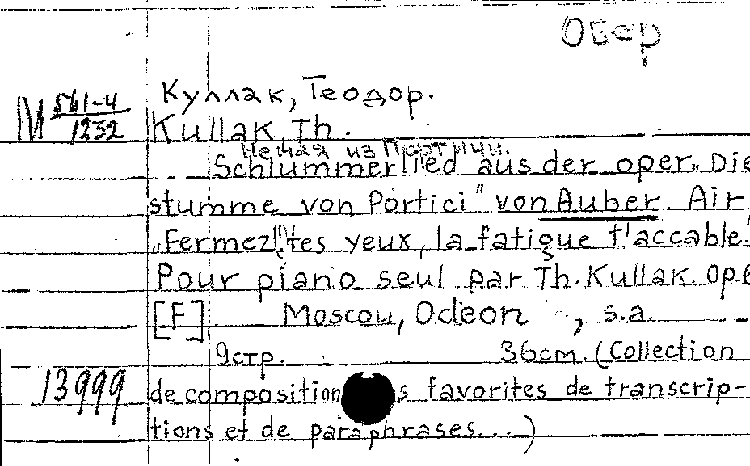 Обер
Куллак, Теодор.
М 561-4/1232 Kullak, Th.
Немая из Портичи.
Schlummerlied aus der oper „Die
stumme von Portici" von Auber. Air
„Fermez! tes yeux, la fatigue t'accable.
Pour piano seul par Th. Kullak. Op6
[F] Moscou, Odeon , s.a.
9стр. 36cm. (Collection
13999 de composition s favorites de transcrip-
tions et de paraphrases...)